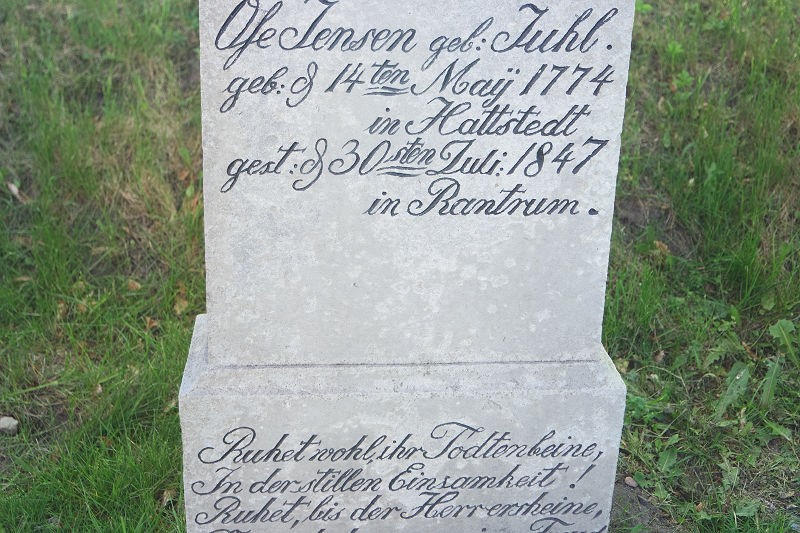 Ose Jensen geb: Juhl.
geb: d 14ten Maÿ 1774
in Hattstedt
gest: d 30sten Juli: 1847
in Rantrum.
Ruhet wohl, ihr Todtenbeine,
In der stillen Einsamkeit!
Ruhet, bis der Herr ersheine,